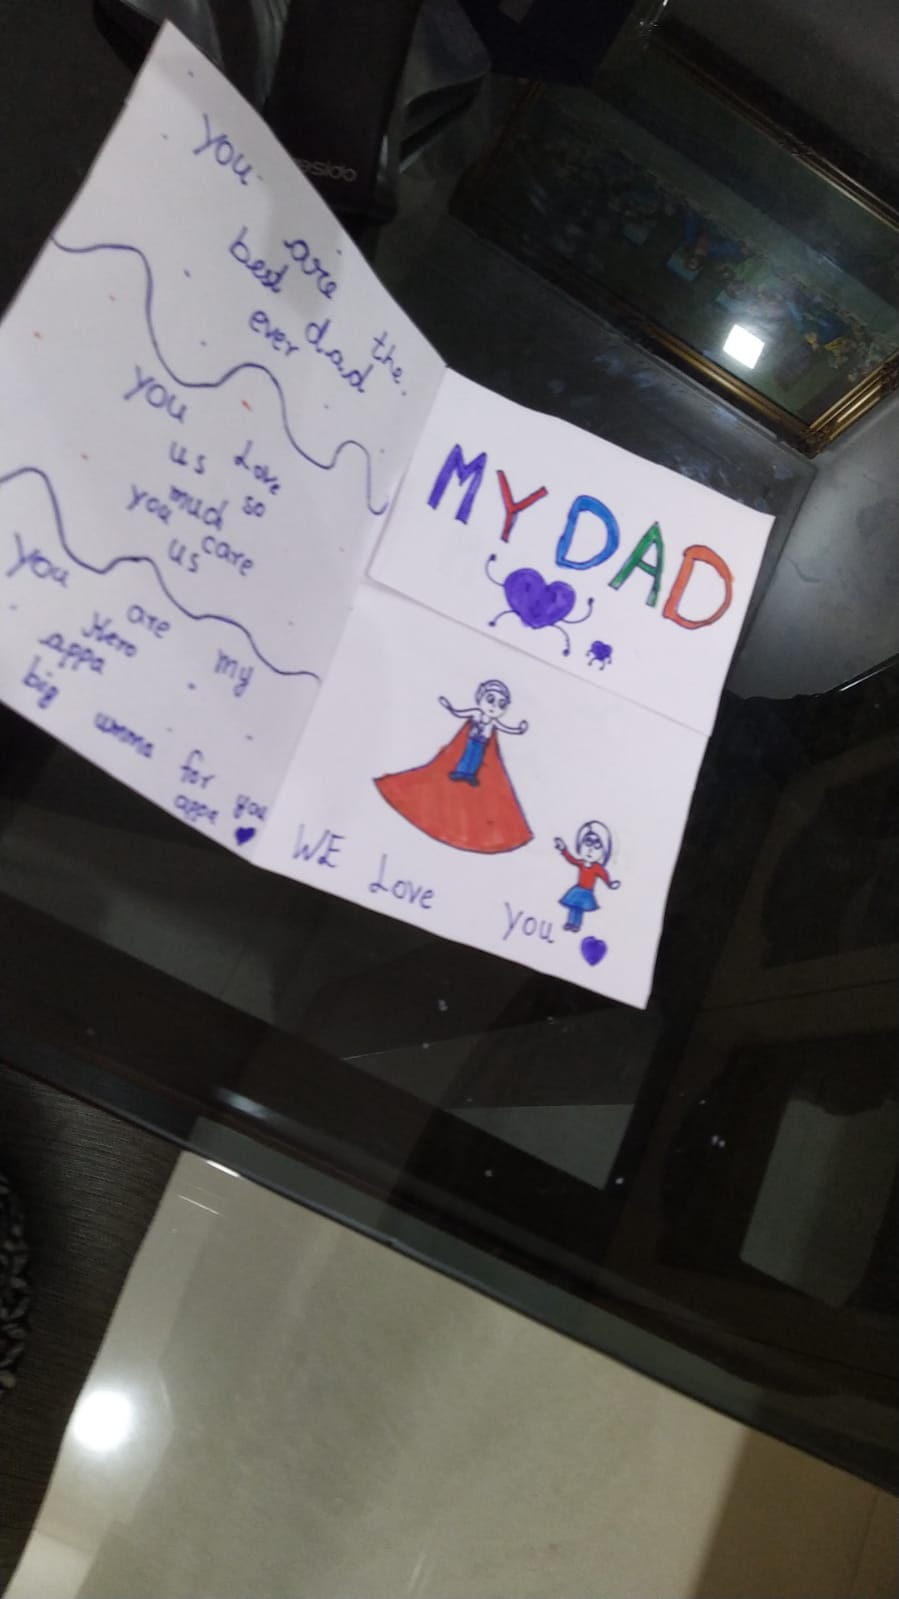 You are the
best dad
ever
you Love
us so
much
you care
us
you are my
Hero
appa
big umma for you
appa
MY DAD
WE Love you